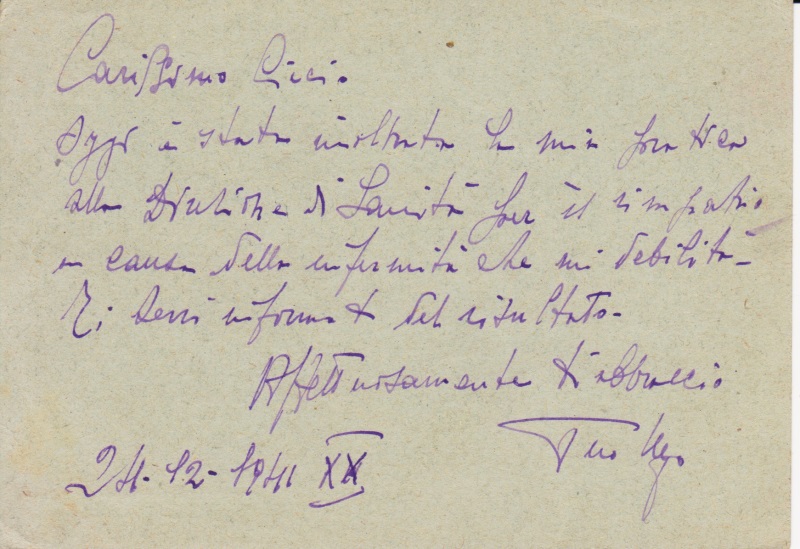 Carissimo Ciccio
Oggi è stata inoltrata la mia pratica
alla Direzione di Sanità per il rimpatrio
a causa della infermità che mi debilita -
Ti terrò informato del risultato -
Affettuosamente ti abbraccio
Tuo Ugo
24-12-1941 XX